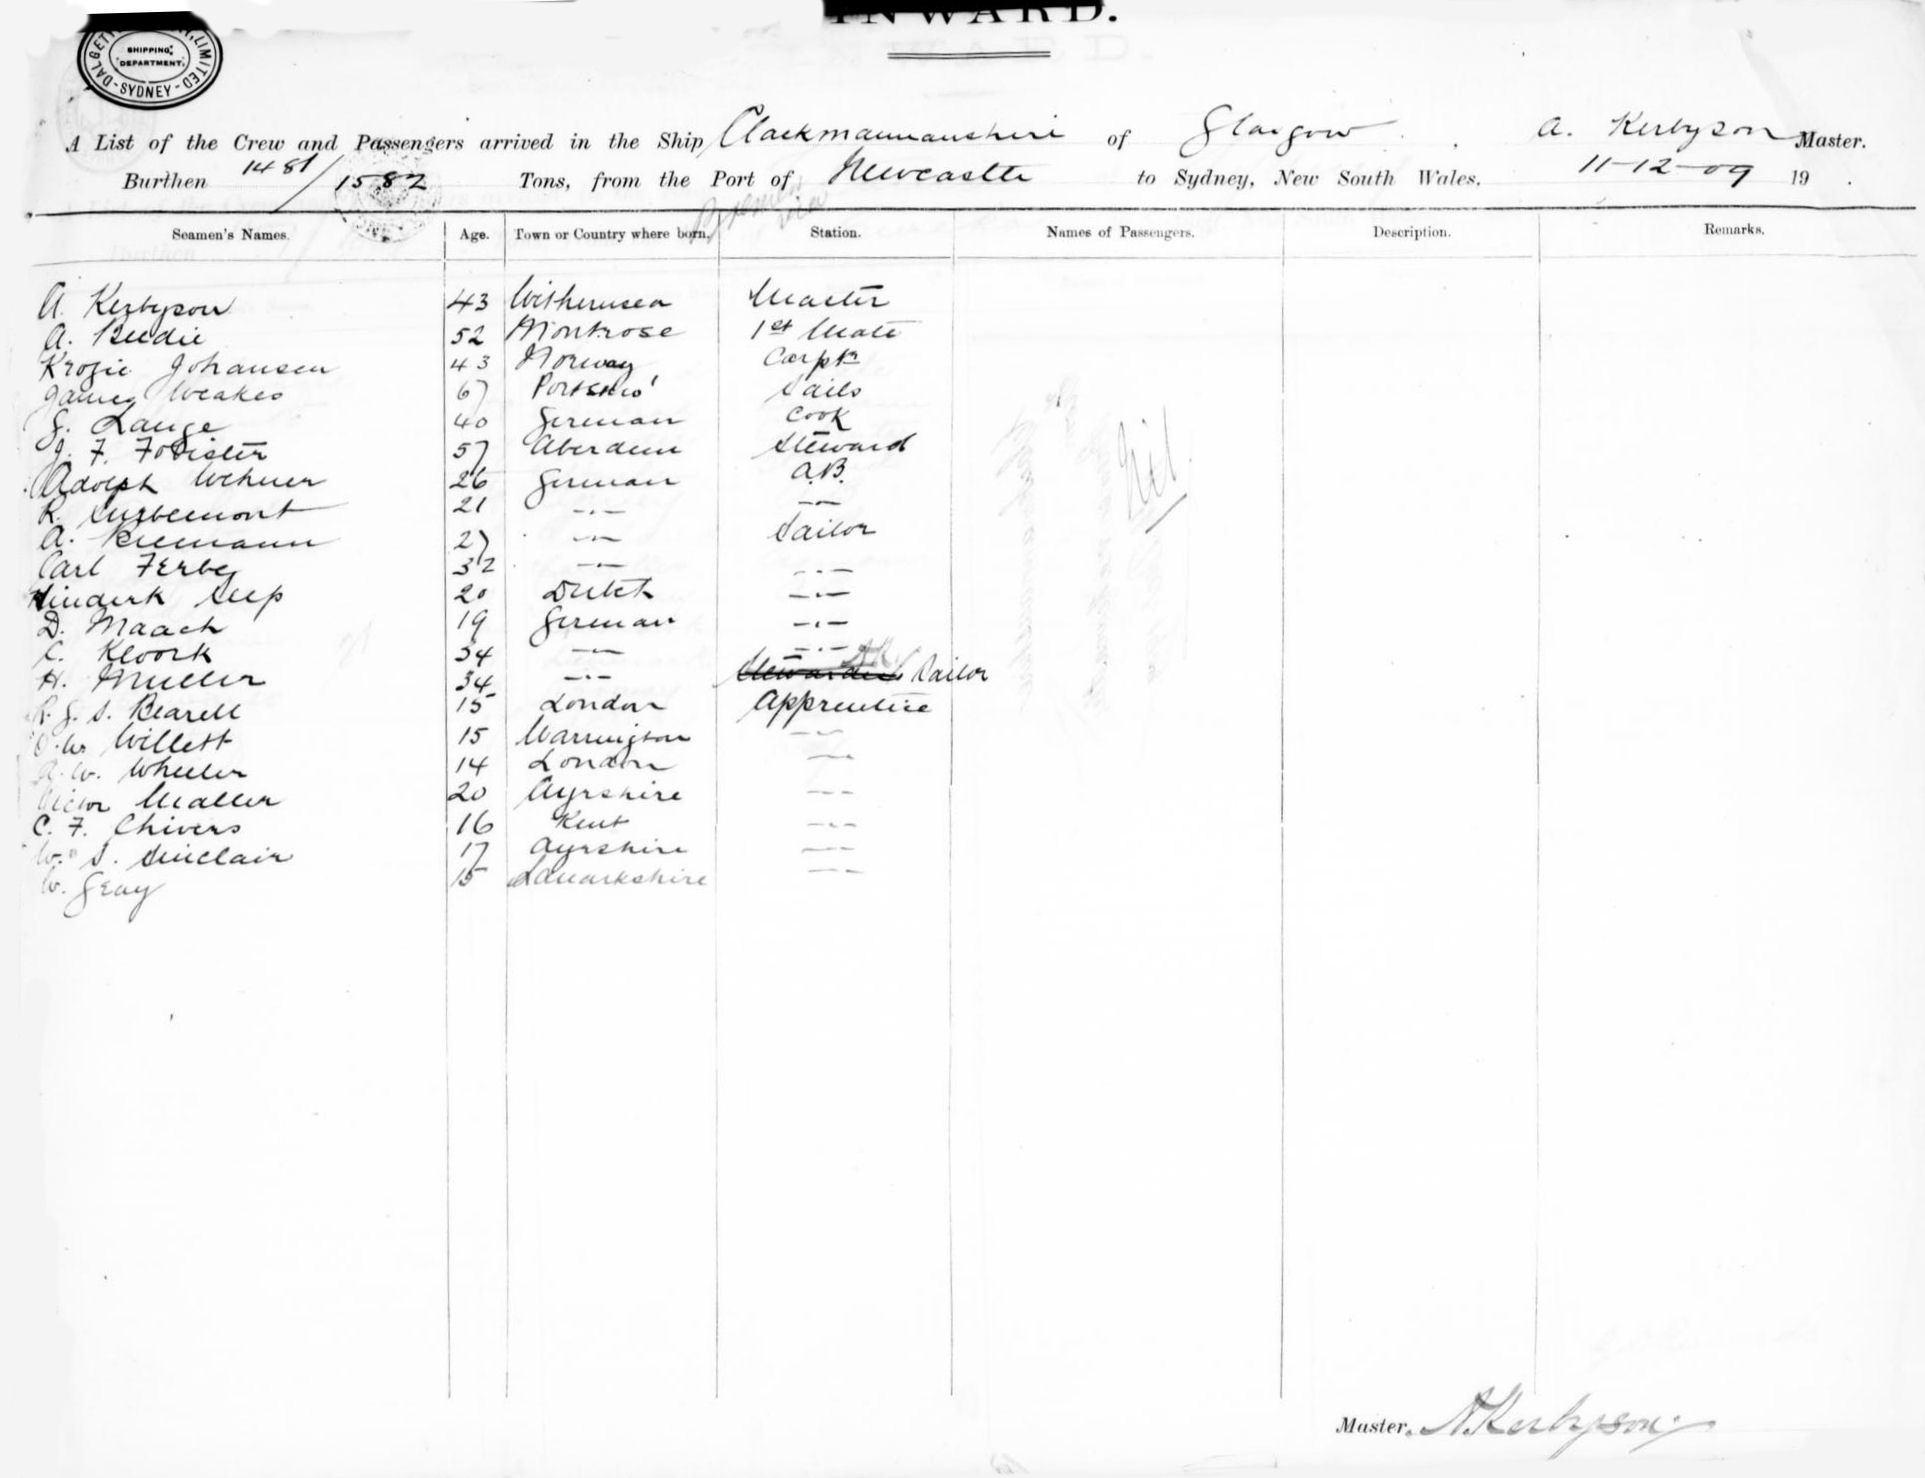 INWARD.
DALGETY & COMPANY, LIMITED
SHIPPING
DEPARTMENT.
SYDNEY
A List of the Crew and Passengers arrived in the Ship Clackmannanshire of Glasgow. A. Kerbyson Master.
Burthen 1481/1582 Tons, from the Port of Newcastle to Sydney, New South Wales, 11-12-09 19 .
Seamen's Names. Age. Town or Country where born. Station. Names of Passengers. Description. Remarks.
A. Kerbyson 43 Withernsea Master
A. Beedie 52 Montrose 1st Mate
Johansen 43 Norway Carptr
James Weakes 67 Sails
G. Lange 40 German Cook
J. F. Forister 57 Aberdeen Steward
Adolph Wehner 26 German A.B.
R. 21 -"- -"-
A. Riemann 27 -"- Sailor
Carl Ferbe 32 -"- -"-
Hinderk Seep 20 Dutch -"-
D. Maack 19 German -"-
C. Kloork 34 -"- -"-
H. Muller 34 -"- Sailor
R. G. S. Bearell 15 London Apprentice
Willett 15 Warrington -"-
A. W. Wheeler 14 London -"-
Victor Maller 20 Ayrshire -"-
C. F. Chivers 16 Kent -"-
W. S. Sinclair 17 Ayrshire -"-
W. Gray 15 Lanarkshire -"-
Nil.
Master, A. Kerbyson.